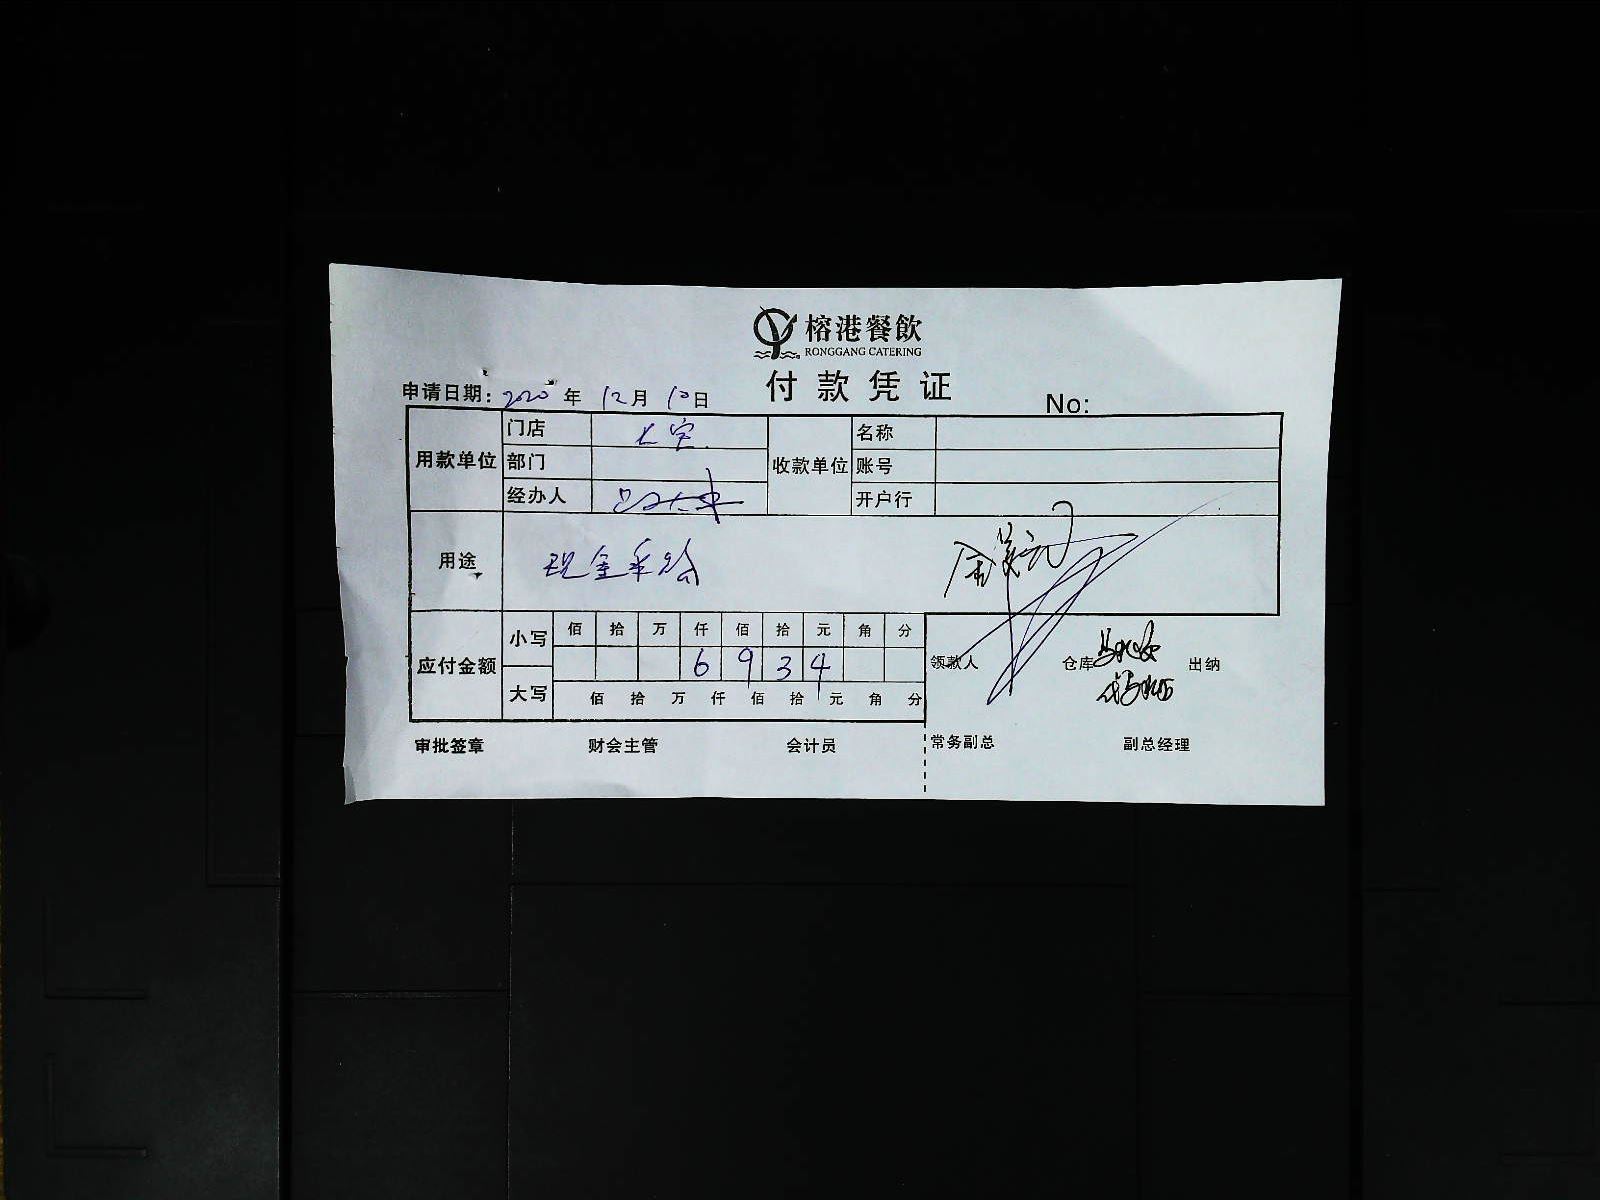 榕港餐飲
RONGGANG CATERING
付款凭证
申请日期: 2020 年 12 月 10 日
No:
用款单位 门店 大宁 收款单位 名称
部门 账号
经办人 开户行
用途 现金采购
应付金额 小写 佰 拾 万 仟 佰 拾 元 角 分
6 9 3 4
大写 佰 拾 万 仟 佰 拾 元 角 分
领款人 仓库 出纳
审批签章 财会主管 会计员 常务副总 副总经理